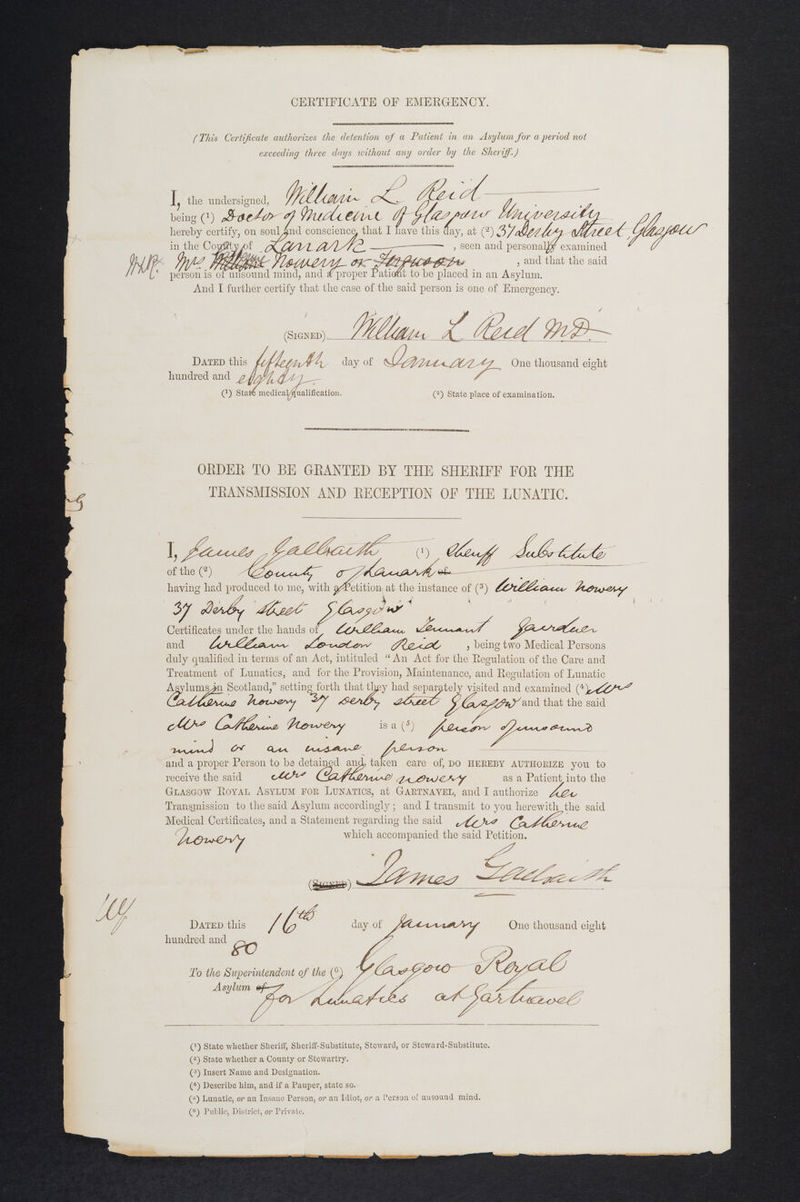 CERTIFICATE OF EMERGENCY.
(This Certificate authorizes the detention of a Patient in an Asylum for a period not
exceeding three days without any order by the Sheriff.)
I, the undersigned, William L Reid
being (1) Doctor of Medicine of Glasgow University
hereby certify, on soul and conscience, that I have this day, at (2) 37 Derby Street Glasgow
in the County of Lanark, seen and personally examined
Mrs Nowery or Ferguson, and that the said
person is of unsound mind, and a proper Patient to be placed in an Asylum.
And I further certify that the case of the said person is one of Emergency.
(SIGNED) William L Reid MD
DATED this fifteenth day of January One thousand eight
hundred and eighty
(1) State medical qualification. (2) State place of examination.
ORDER TO BE GRANTED BY THE SHERIFF FOR THE
TRANSMISSION AND RECEPTION OF THE LUNATIC.
I, James Galbraith (1) Sheriff Substitute
of the (2) County of Lanark
having had produced to me, with a Petition at the instance of (3) William Nowery
37 Derby Street Glasgow
Certificates under the hands of William Tennant Gairdner
and William Loudon Reid, being two Medical Persons
duly qualified in terms of an Act, intituled "An Act for the Regulation of the Care and
Treatment of Lunatics, and for the Provision, Maintenance, and Regulation of Lunatic
Asylums in Scotland," setting forth that they had separately visited and examined (4) Mrs
Catherine Nowery 37 Derby Street Glasgow and that the said
Mrs Catherine Nowery is a (5) person of unsound
mind or an insane person
and a proper Person to be detained and taken care of, DO HEREBY AUTHORIZE you to
receive the said Mrs Catherine Nowery as a Patient into the
GLASGOW ROYAL ASYLUM FOR LUNATICS, at GARTNAVEL, and I authorize her
Transmission to the said Asylum accordingly; and I transmit to you herewith the said
Medical Certificates, and a Statement regarding the said Mrs Catherine
Nowery which accompanied the said Petition.
(SIGNED) James Galbraith
DATED this 16th day of January One thousand eight
hundred and 80
To the Superintendent of the (6) Glasgow Royal
Asylum of for Lunatics at Gartnavel
(1) State whether Sheriff, Sheriff-Substitute, Steward, or Steward-Substitute.
(2) State whether a County or Stewartry.
(3) Insert Name and Designation.
(4) Describe him, and if a Pauper, state so.
(5) Lunatic, or an Insane Person, or an Idiot, or a Person of unsound mind.
(6) Public, District, or Private.